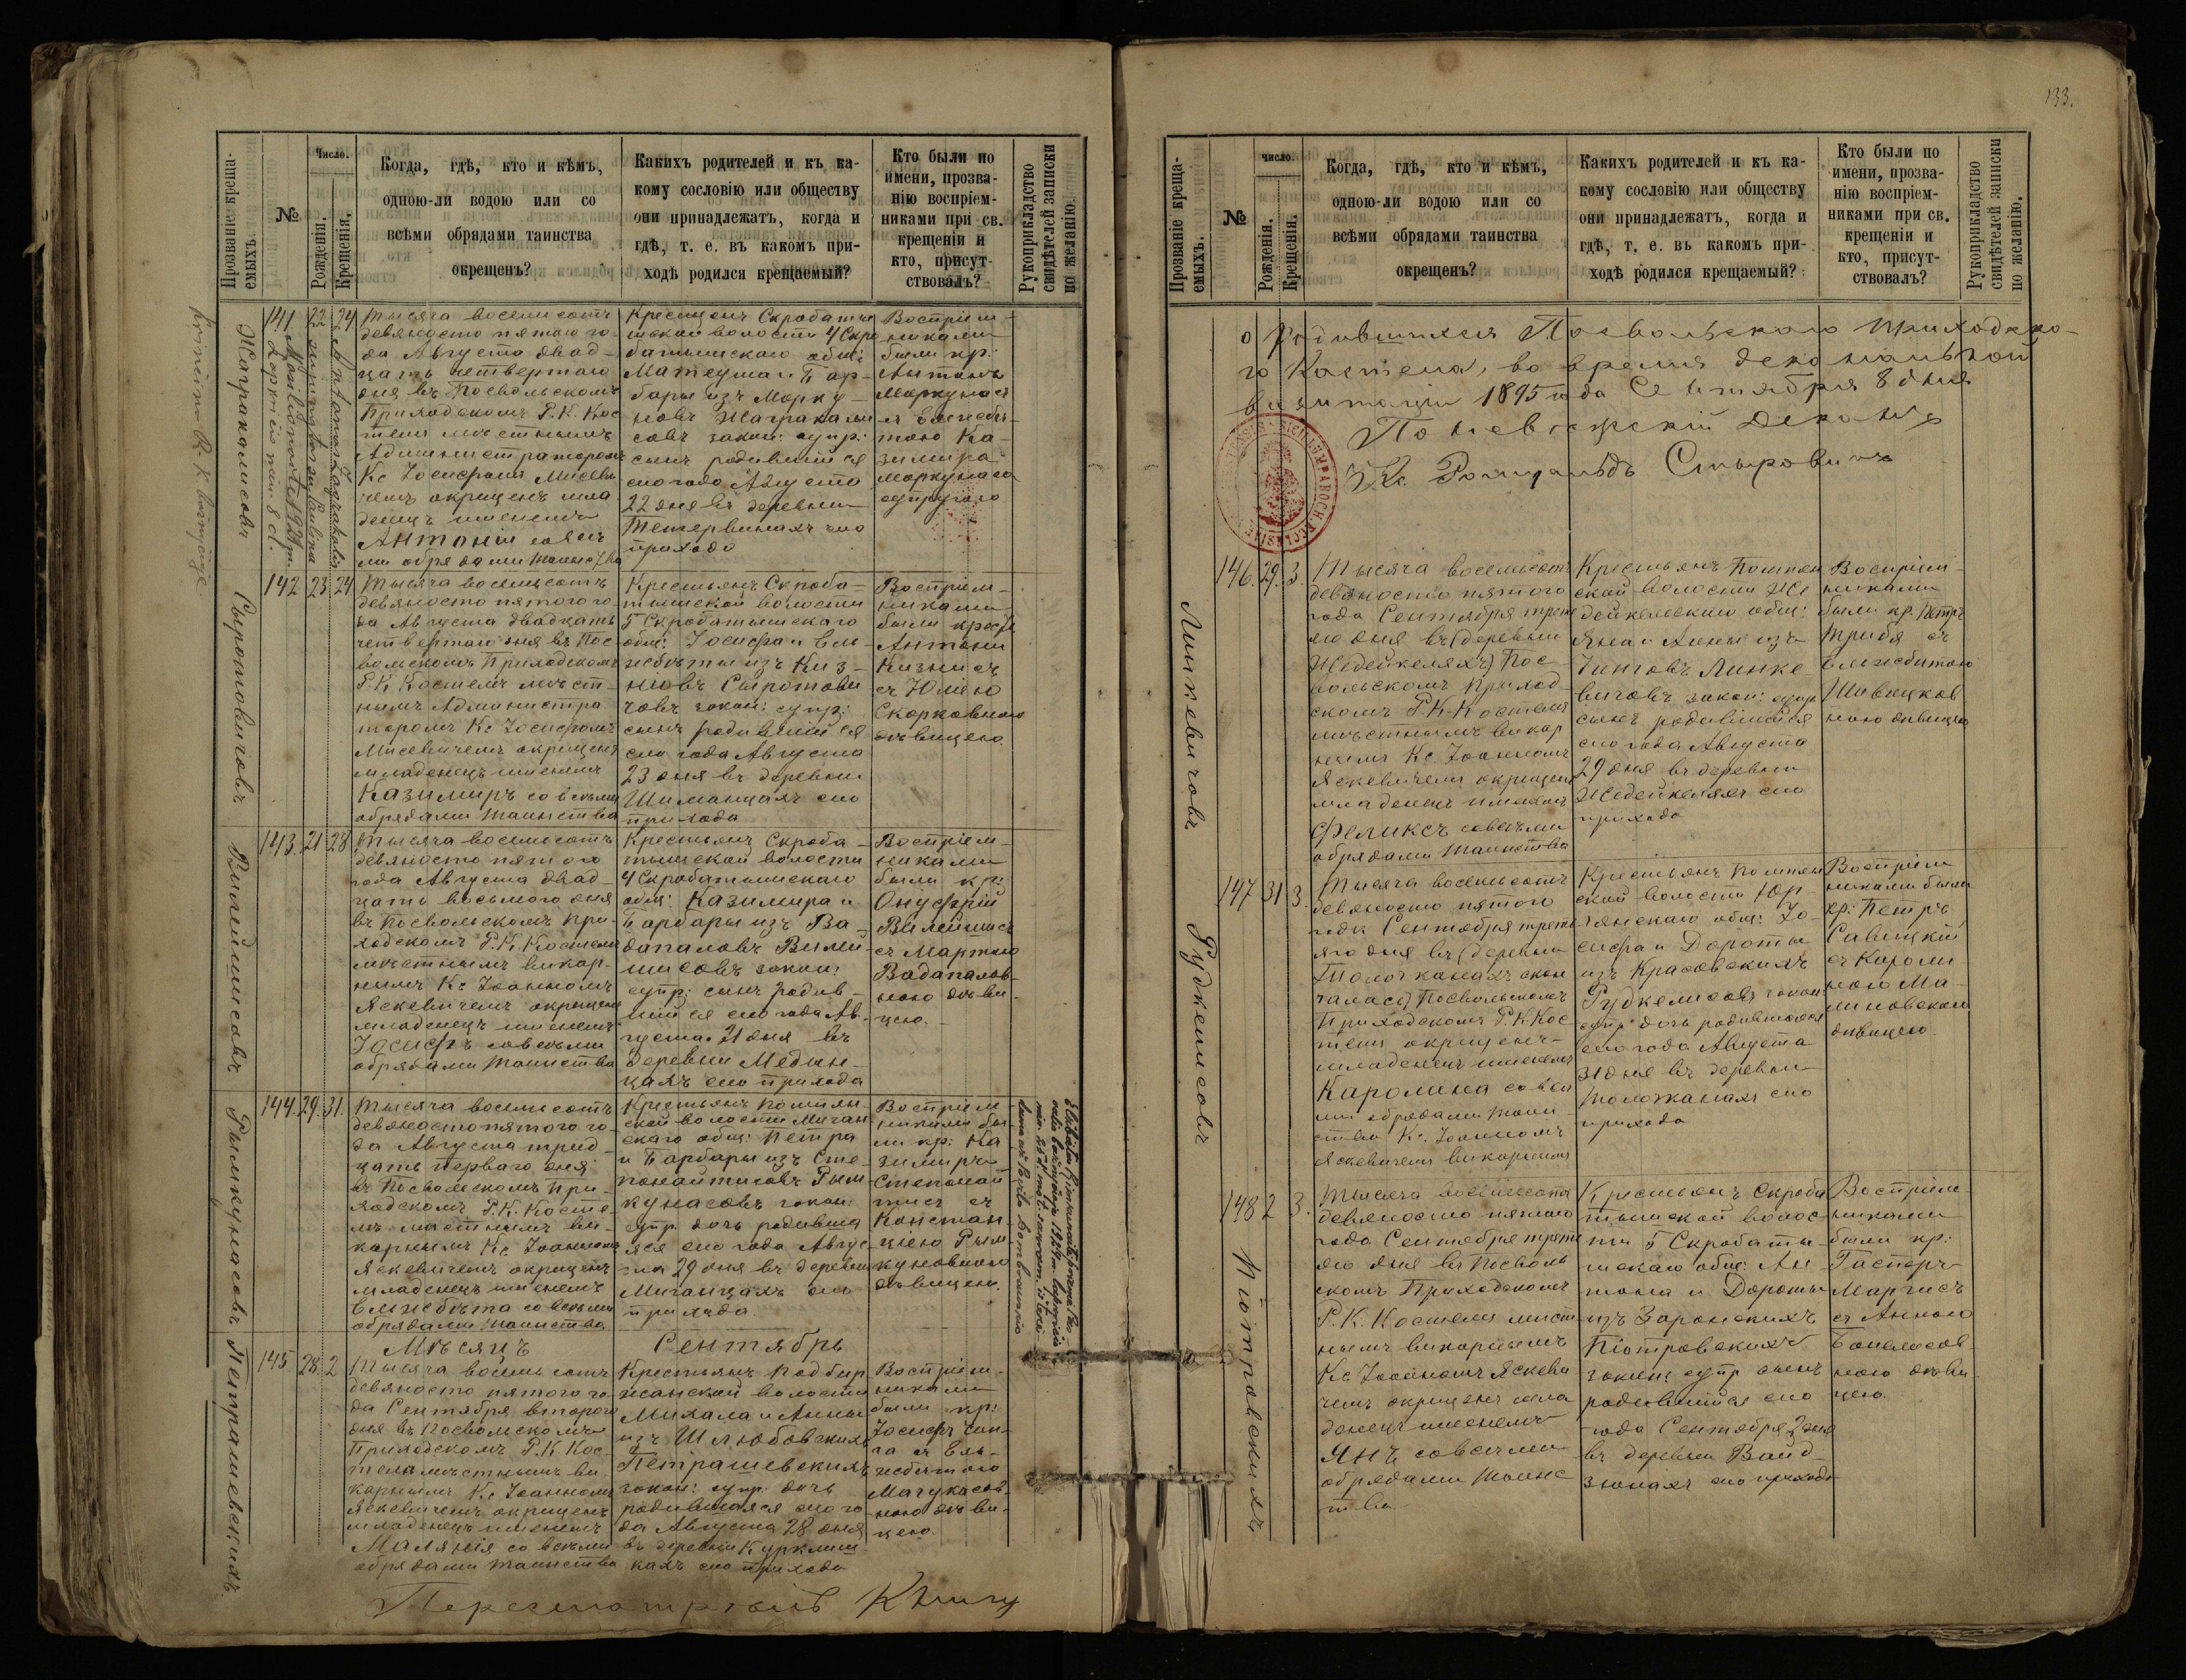 133.
Прозваніе креща-
емыхъ.
№
Число.
Рожденія.
Крещенія.
Когда, гдѣ, кто и кѣмъ,
одною-ли водою или со
всѣми обрядами таинства
окрещенъ?
Какихъ родителей и къ ка-
кому сословію или обществу
они принадлежатъ, когда и
гдѣ, т. е. въ какомъ при-
ходѣ родился крещаемый?
Кто были по
имени, прозва-
нію воспріем-
никами при св.
крещеніи и
кто, присут-
ствовалъ?
Рукоприкладство
свидѣтелей записки
по желанію.
Жагракалисовъ
141 22 24
Тысяча восемьсотъ
девяносто пятого го-
да Августа двад-
цать четвертаго
дня въ Посвольскомъ
Приходскомъ Р. К. Кос
телѣ мѣстнымъ
Администраторомъ
Кс Іосифомъ Мисеви
чемъ окрещенъ мла
денецъ именемъ
Антоній со всѣ
ми обрядами таинства
Крестьянъ Скробатыш
ской волости 4 Скро
батышскаго общ:
Матеуша и Бар-
бары изъ Марку-
новъ Жагракали
совъ закон: супр:
сынъ родившійся
сего года Августа
22 дня въ деревни
Тетервинахъ сего
прихода
Воспріем-
никами
были кр:
Антонъ
Маркунасъ
съ Елисаве
тою Ка-
зимира
Маркунаса
супругою
Сыротовичовъ
142 23 24
Тысяча восемьсотъ
девяносто пятого го-
да Августа двадцать
четвертаго дня въ Пос
вольскомъ Приходскомъ
Р. К. Костелѣ мѣст-
нымъ Администра
торомъ Кс Іосифомъ
Мисевичемъ окрещенъ
младенецъ именемъ
Казимиръ со всѣми
обрядами таинства
Крестьянъ Скроба-
тышской волости
Г Скробатышскаго
общ: Іосифа и Ели
зебѣты изъ Киз-
нюовъ Сыротови
човъ закон: супр:
сынъ родившійся
сего года Августа
23 дня въ деревни
Шиманцахъ сего
прихода
Воспріем-
никами
были крест
Антоній
Кизнисъ
съ Юліею
Скорковною
дѣвицею
Вилейшисовъ
143 21 28
Тысяча восемьсотъ
девяносто пятого
года Августа двад-
цать восьмого дня
въ Посвольскомъ При-
ходскомъ Р. К. Костелѣ
мѣстнымъ викар-
нымъ Кс Іоанномъ
Яскевичемъ окрещенъ
младенецъ именемъ
Іосифъ со всѣми
обрядами таинства
Крестьянъ Скроба-
тышской волости
4 Скробатышскаго
общ: Казимира и
Барбары изъ Ва-
дапаловъ Вилей-
шисовъ закон:
супр: сынъ родив-
шійся сего года Ав-
густа 21 дня въ
деревни Медин-
кахъ сего прихода
Воспріем-
никами
были кр:
Онуфрій
Вилейшисъ
съ Мартою
Вадапалов-
ною дѣви-
цею.
Рымкунасовъ
144 29 31
Тысяча восемьсотъ
девяносто пятого го-
да Августа трид-
цать перваго дня
въ Посвольскомъ При-
ходскомъ Р. К. Косте-
лѣ мѣстнымъ ви-
карнымъ Кс Іоанномъ
Яскевичемъ окрещенъ
младенецъ именемъ
Елисебѣта со всѣми
обрядами таинства
Крестьянъ Помпян-
ской волости Мичан
скаго общ: Петра
и Барбары изъ Сте-
понайтисовъ Рым-
кунасовъ закон:
супр. дочь родивша
яся сего года Авгус-
та 29 дня въ деревни
Мичанцахъ сего
прихода
Воспріем
никами бы-
ли кр: Ка
зимиръ
Степонай
тисъ съ
Констан-
цією Рым-
куновною
дѣвицею.
Петрашевскихъ
Мѣсяцъ Сентябрь
145 28 2
Тысяча восемьсотъ
девяносто пятого го-
да Сентября второго
дня въ Посвольскомъ
Приходскомъ Р. К. Кос
телѣ мѣстнымъ ви
карнымъ Кс Іоанномъ
Яскевичемъ окрещенъ
младенецъ именемъ
Малянія со всѣми
обрядами таинства
Крестьянъ Подбир
жанской волости
Михала и Анны
изъ Шлюбовскихъ
Петрашевскихъ
закон: супр: дочь
родившаяся сего го
да Августа 28 дня
въ деревни Курклиш-
кахъ сего прихода
Воспріем-
никами
были кр:
Іосифъ Чин-
га съ Ель-
жбѣтою
Мачукасов-
ною дѣви-
цею.
Пересмотрѣлъ Книгу
о родившихся Посвольскаго приходско-
го Костела, во время деканальной
визитаціи 1895 года Сентября 8 дня
Поневѣжскій Деканъ
Кс. Ромуальдъ Сыровичъ
Линкевичовъ
146. 29. 3.
Тысяча восемьсотъ
девяносто пятого
года Сентября треть
яго дня въ (деревни
Жедейкеляхъ) Пос-
вольскомъ Приход-
скомъ Р. К. Костелѣ
мѣстнымъ викар
нымъ Кс Іоанномъ
Яскевичемъ окрещенъ
младенецъ именемъ
Феликсъ со всѣми
обрядами таинства
Крестьянъ Помпян
ской волости Же
дейкельскаго общ:
Яна и Анны изъ
Чинговъ Линке
вичовъ закон: супр
сынъ родившійся
сего года Августа
29 дня въ деревни
Жедейкеляхъ сего
прихода
Воспріем-
никами
были кр. Петръ
Трибя съ
Елисебѣтою
Швицков
ною дѣвицею
Рудкелисовъ
147 31 3.
Тысяча восемьсотъ
девяносто пятого
года Сентября треть
яго дня въ (деревни
Толочканахъ скон
чалась) Посвольскомъ
Приходскомъ Р. К. Кос
телѣ окрещенъ
младенецъ именемъ
Каролина со всѣ
ми обрядами таин
ства Кс. Іоанномъ
Яскевичемъ викарнымъ
Крестьянъ Помпян
ской волости Юр-
гянскаго общ: Іо-
сифа и Дороты
изъ Красовскихъ
Рудкелисовъ закон
супр: дочь родившаяся
сего года Августа
31 дня въ деревни
Толочканахъ сего
прихода
Воспріем
никами были
кр: Петръ
Савицкій
съ Кароли
ною Ма-
линовскою
дѣвицею.
Піотровскихъ
148 2 3.
Тысяча восемьсотъ
девяносто пятого
года Сентября треть
яго дня въ Посволь
скомъ Приходскомъ
Р. К. Костелѣ мѣст
нымъ викарнымъ
Кс Іоанномъ Яскеви
чемъ окрещенъ мла
денецъ именемъ
Янъ со всѣми
обрядами таинс
тва
Крестьянъ Скроба
тышской волос-
ти Г Скробаты-
шскаго общ: Ан-
тона и Дороты
изъ Заронскихъ
Піотровскихъ
закон: супр сынъ
родившійся сего
года Сентября 2 дня
въ деревни Вайд-
зюнахъ сего прихода
Воспріем-
никами
были кр:
Гасперъ
Маргисъ
съ Анною
Банелисов
ною дѣви
цею.